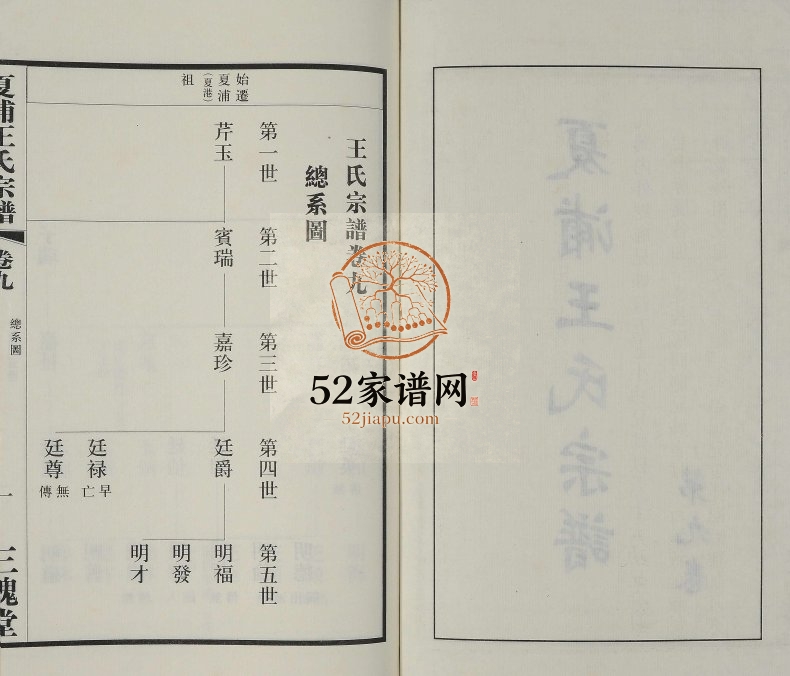 夏浦王氏宗譜
第九卷
王氏宗譜卷九
總系圖
第一世
第二世
第三世
第四世
第五世
始遷
夏浦
(夏港)
祖
芹玉
賓瑞
嘉珍
廷爵
廷禄
早亡
廷尊
無傳
明福
明發
明才
夏浦王氏宗譜
卷九
總系圖
一
三槐堂
52家谱网
52jiapu.com